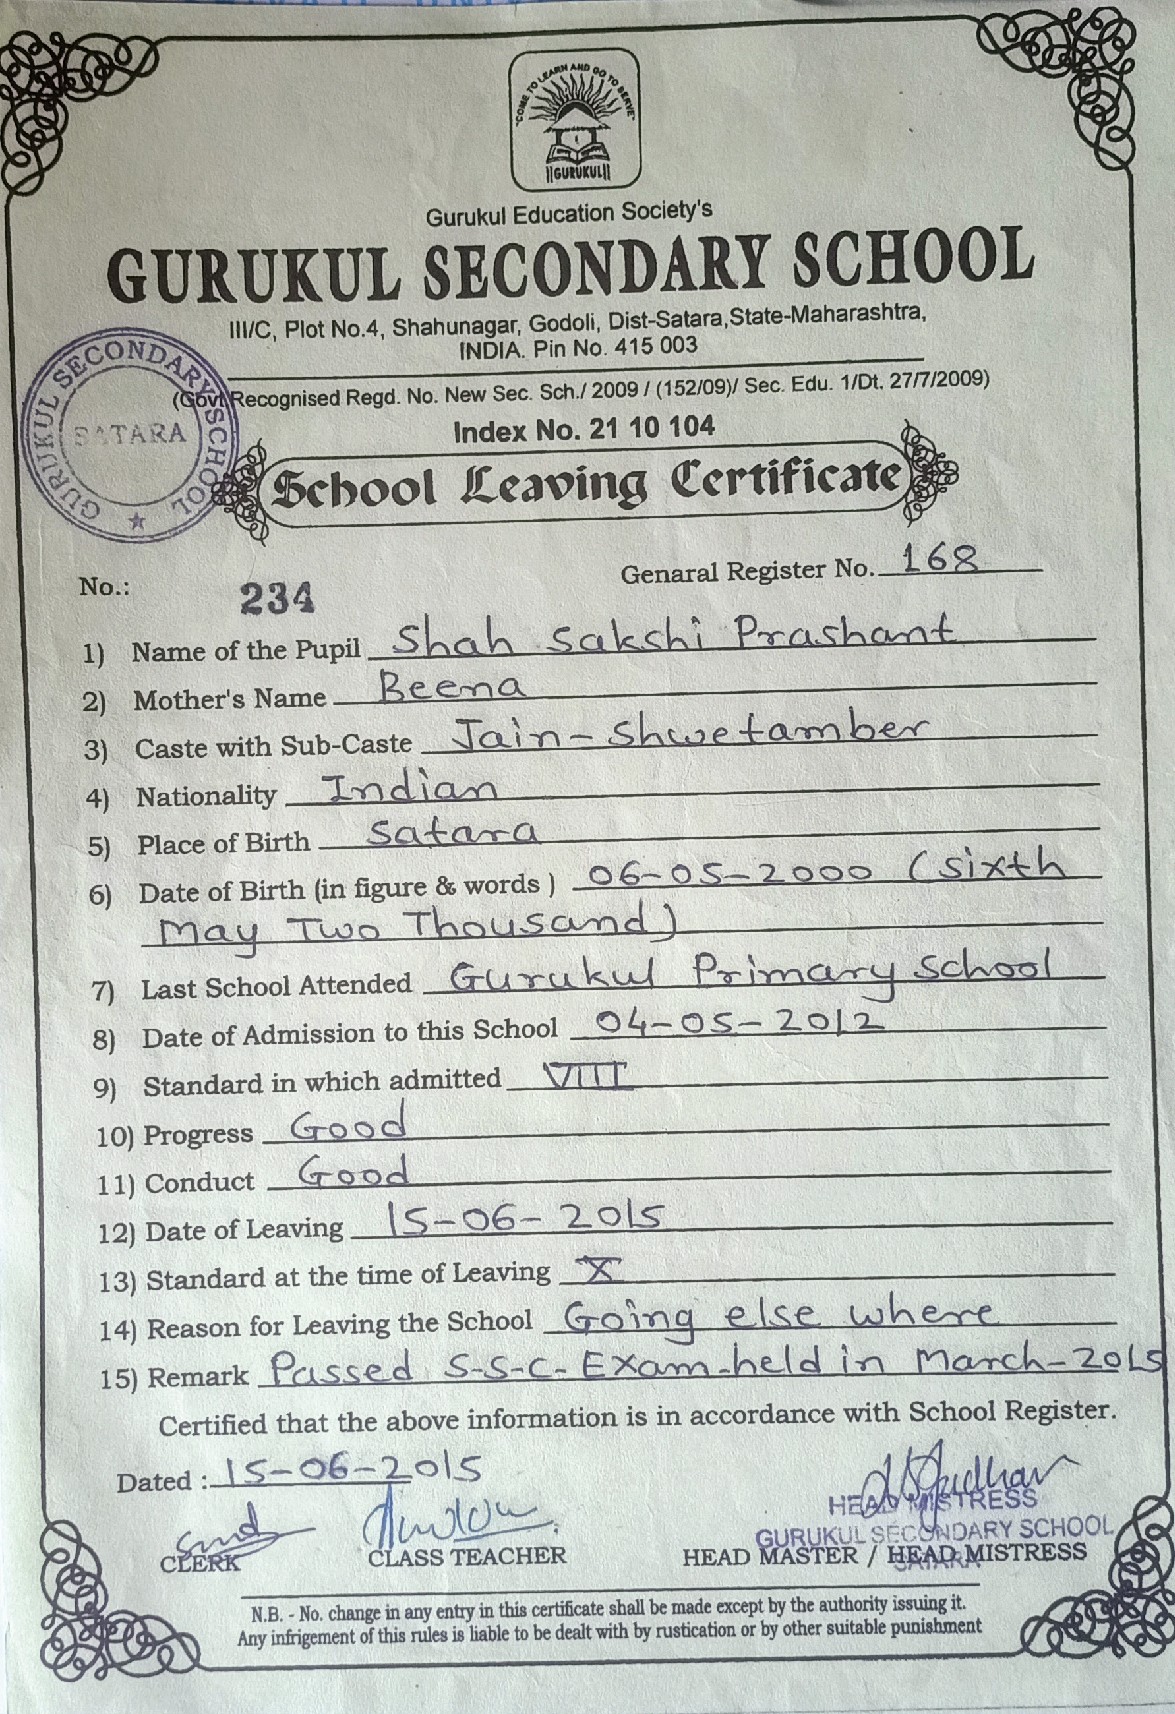 "COME TO LEARN AND GO TO SERVE"
||GURUKUL||
Gurukul Education Society's
GURUKUL SECONDARY SCHOOL
III/C, Plot No.4, Shahunagar, Godoli, Dist-Satara,State-Maharashtra,
INDIA. Pin No. 415 003
(Govt Recognised Regd. No. New Sec. Sch./ 2009 / (152/09)/ Sec. Edu. 1/Dt. 27/7/2009)
GURUKUL SECONDARY SCHOOL
SATARA
Index No. 21 10 104
School Leaving Certificate
No.: 234 Genaral Register No. 168
1) Name of the Pupil Shah Sakshi Prashant
2) Mother's Name Beena
3) Caste with Sub-Caste Jain - Shwetamber
4) Nationality Indian
5) Place of Birth Satara
6) Date of Birth (in figure & words ) 06-05-2000 (Sixth
May Two Thousand)
7) Last School Attended Gurukul Primary School
8) Date of Admission to this School 04-05-2012
9) Standard in which admitted VIII
10) Progress Good
11) Conduct Good
12) Date of Leaving 15-06-2015
13) Standard at the time of Leaving X
14) Reason for Leaving the School Going else where
15) Remark Passed S-S-C- Exam-held in March-2015
Certified that the above information is in accordance with School Register.
Dated : 15-06-2015
HEAD MISTRESS
GURUKUL SECONDARY SCHOOL
SATARA
CLERK CLASS TEACHER HEAD MASTER / HEAD MISTRESS
N.B. - No. change in any entry in this certificate shall be made except by the authority issuing it.
Any infrigement of this rules is liable to be dealt with by rustication or by other suitable punishment